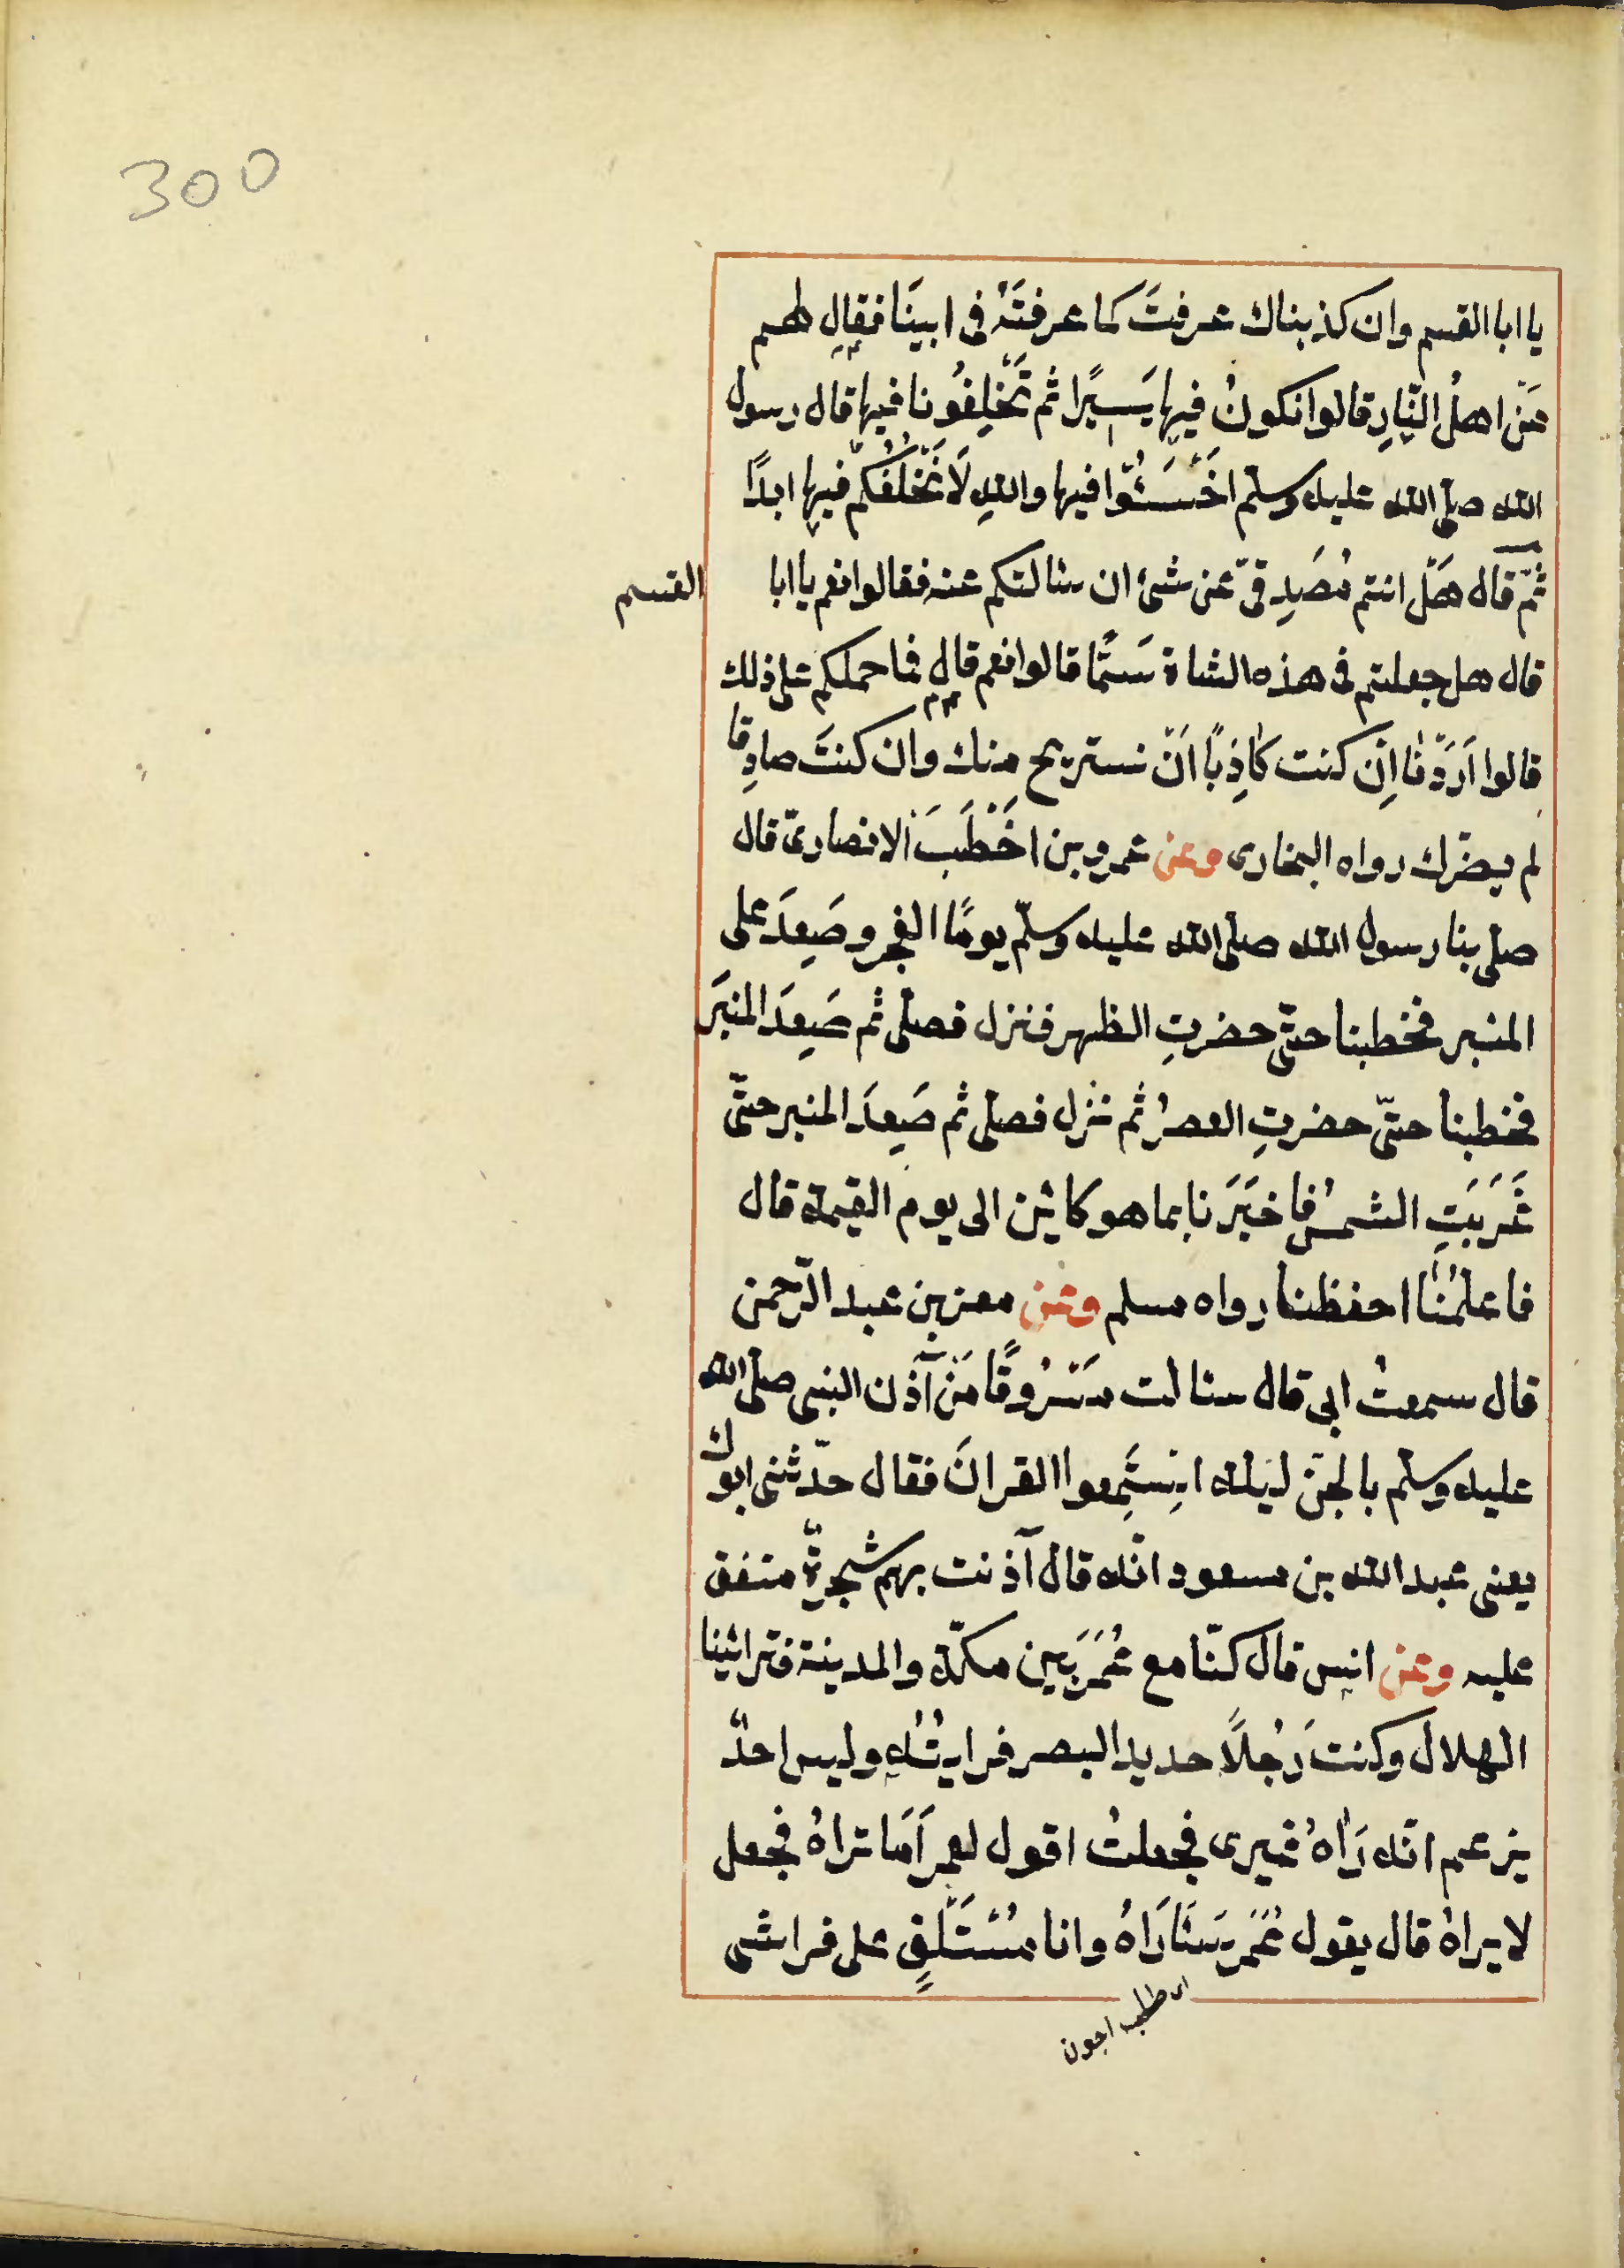 300
يا ابا القسم وان كذبناك عرفتَ كما عرفتَهُ فى ابينَا فقال لهم
مَنْ اهلُ النّارِ قالوا نكونُ فيها يَسيرًا ثم تَخْلِفُونا فيها قال رسول
الله صلى الله عليه وسلم اخْسَئُوا فيها والله لَا نَخْلُفُكُمْ فيها ابدًا
ثمّ قال هَلْ انتم مُصَدِقىّ عن شئ ان سئالتكم عنه فقالوا نعم يا ابا القسم
قال هل جعلتم فى هذه الشاة سَمًّا قالوا نعم قال فما حملكم على ذلك
قالوا اَرَدْنَا اِنْ كنت كَاذِبًا اَنْ نستريح منك وان كنتَ صادِقا
لم يضرّك رواه البخارى وعن عمرو بن اخْطَبَ الانصارىّ قال
صلى بنا رسول الله صلى الله عليه وسلّم يومًا الفجر وصَعِدَ على
المنبر فخطبنا حتىّ حضرتِ الظهر فنزل فصلى ثم صَعِدَ المنبَرَ
فخطبنا حتىّ حضرتِ العصرُ ثم نزل فصلى ثم صَعِدَ المنبر حتىّ
غَرَبَتِ الشمسُ فاخبَرَنا بما هو كائن الى يوم القيمة قال
فاعلمُنَا احفظنا رواه مسلم وعن معن بن عبد الرّحمن
قال سمعتُ ابى قال سئالت مَسْرُوقًا مَنْ آذن النبى صلى الله
عليه وسلّم بالجنّ ليلة اِستَمِعوا القرانَ فقال حدّثنى ابوك
يعنى عبد الله بن مسعود انّه قال آذنت بهم شجرةٌ متفق
عليه وعن انس قال كنّا مع عُمَرَ بَين مكّة والمدينة فترائينا
الهلال وكنتَ رَجُلاً حديد البصر فرايتُهُ وليس احدٌ
يزعم انّه رَاٰهُ غيرى فجعلتُ اقول لعمر اَمَا تراهُ فجعل
لا يراهُ قال يقول عُمَر سَئَارَاهُ وانا مُسْتَلْقٍ على فراشى